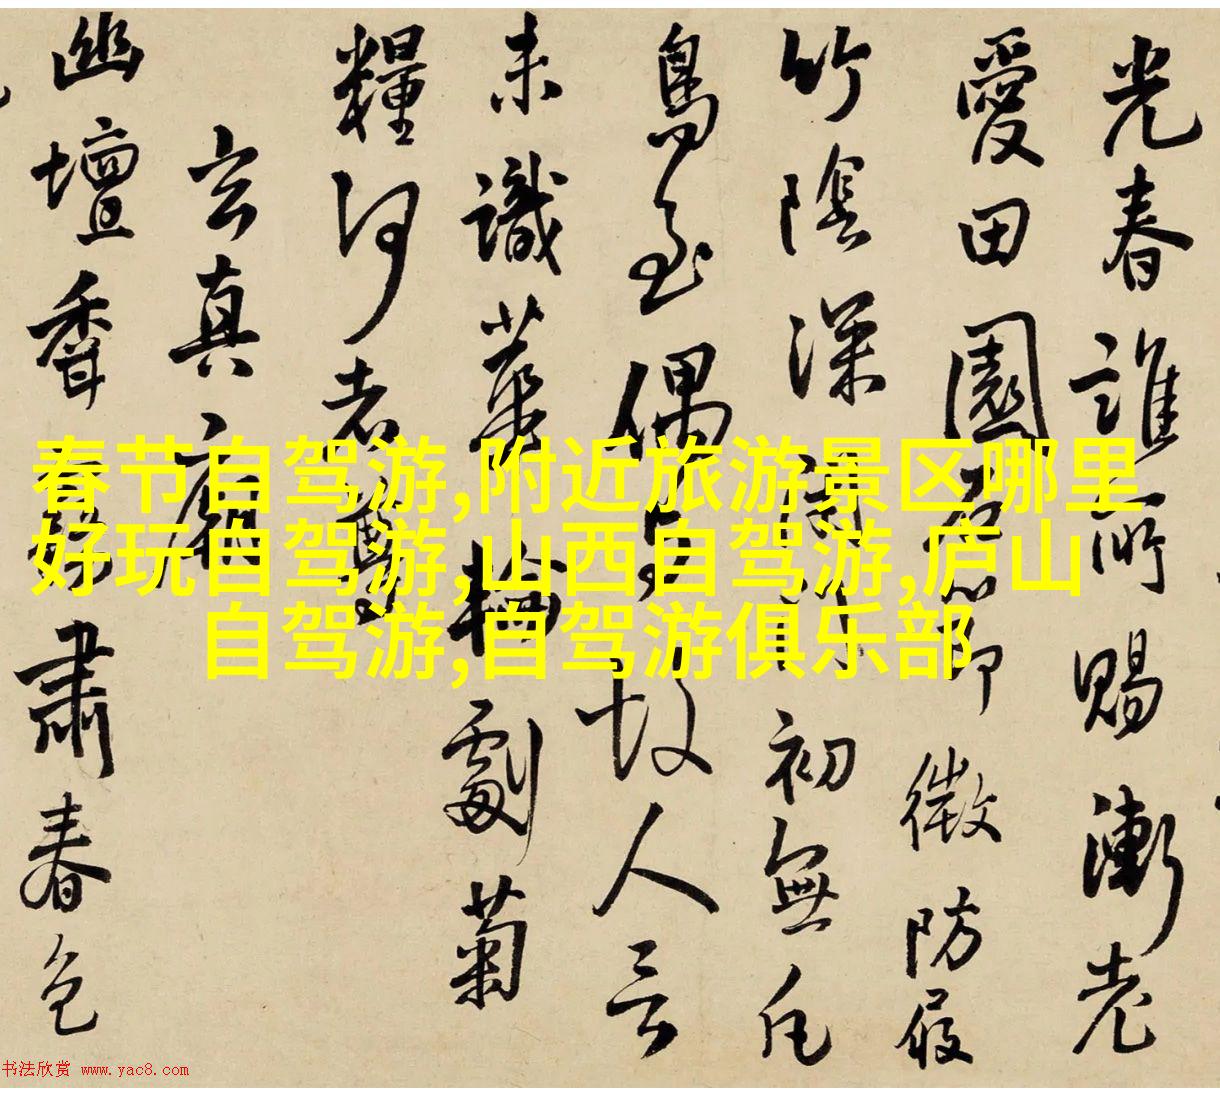 春节自驾游,附近旅游景区哪里
好玩自驾游,山西自驾游,庐山
自驾游,自驾游俱乐部
光春誰所賜漸老
愛田園石微防屐
竹陰深閉門初無凡
鳥至偶與故人言
未識華劇菊
糧何老
玄真廟
幽壇肅春色
书法欣赏 www.yac8.com